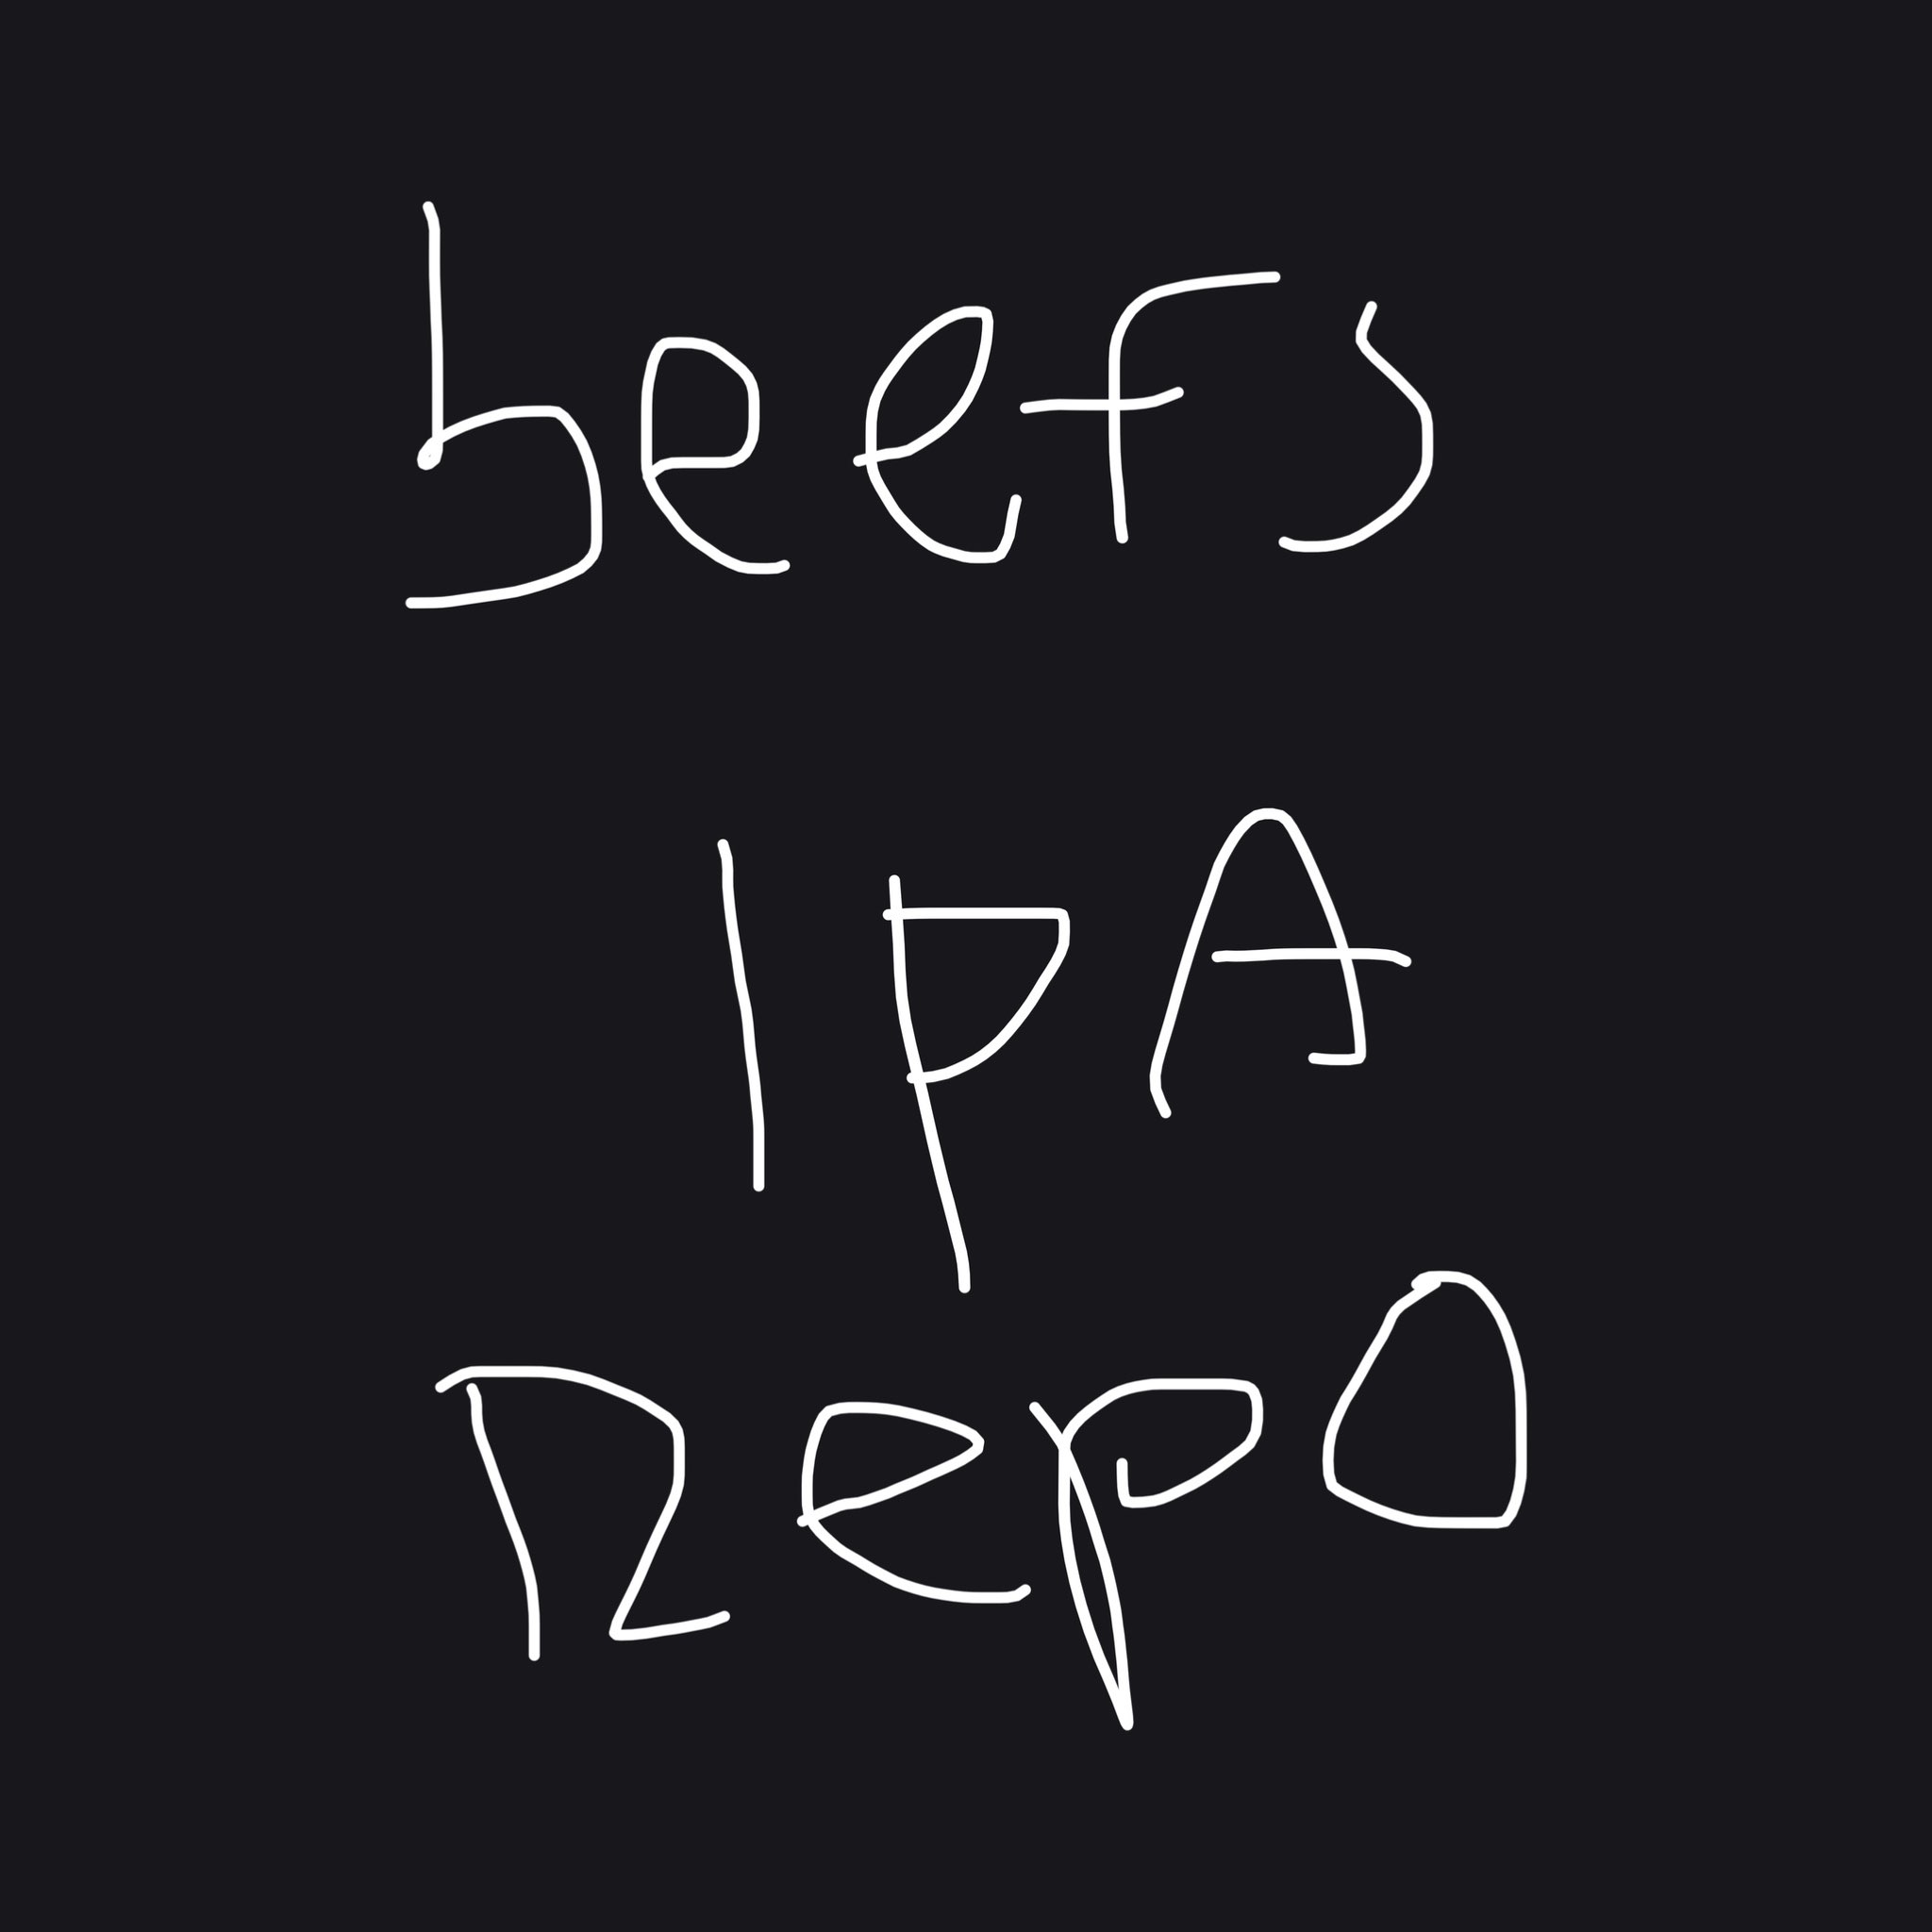 beefs
IPA
Repo